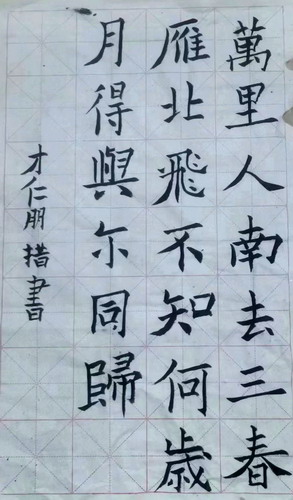 萬里人南去三春
雁北飛不知何歲
月得與尓同歸
才仁朋措書